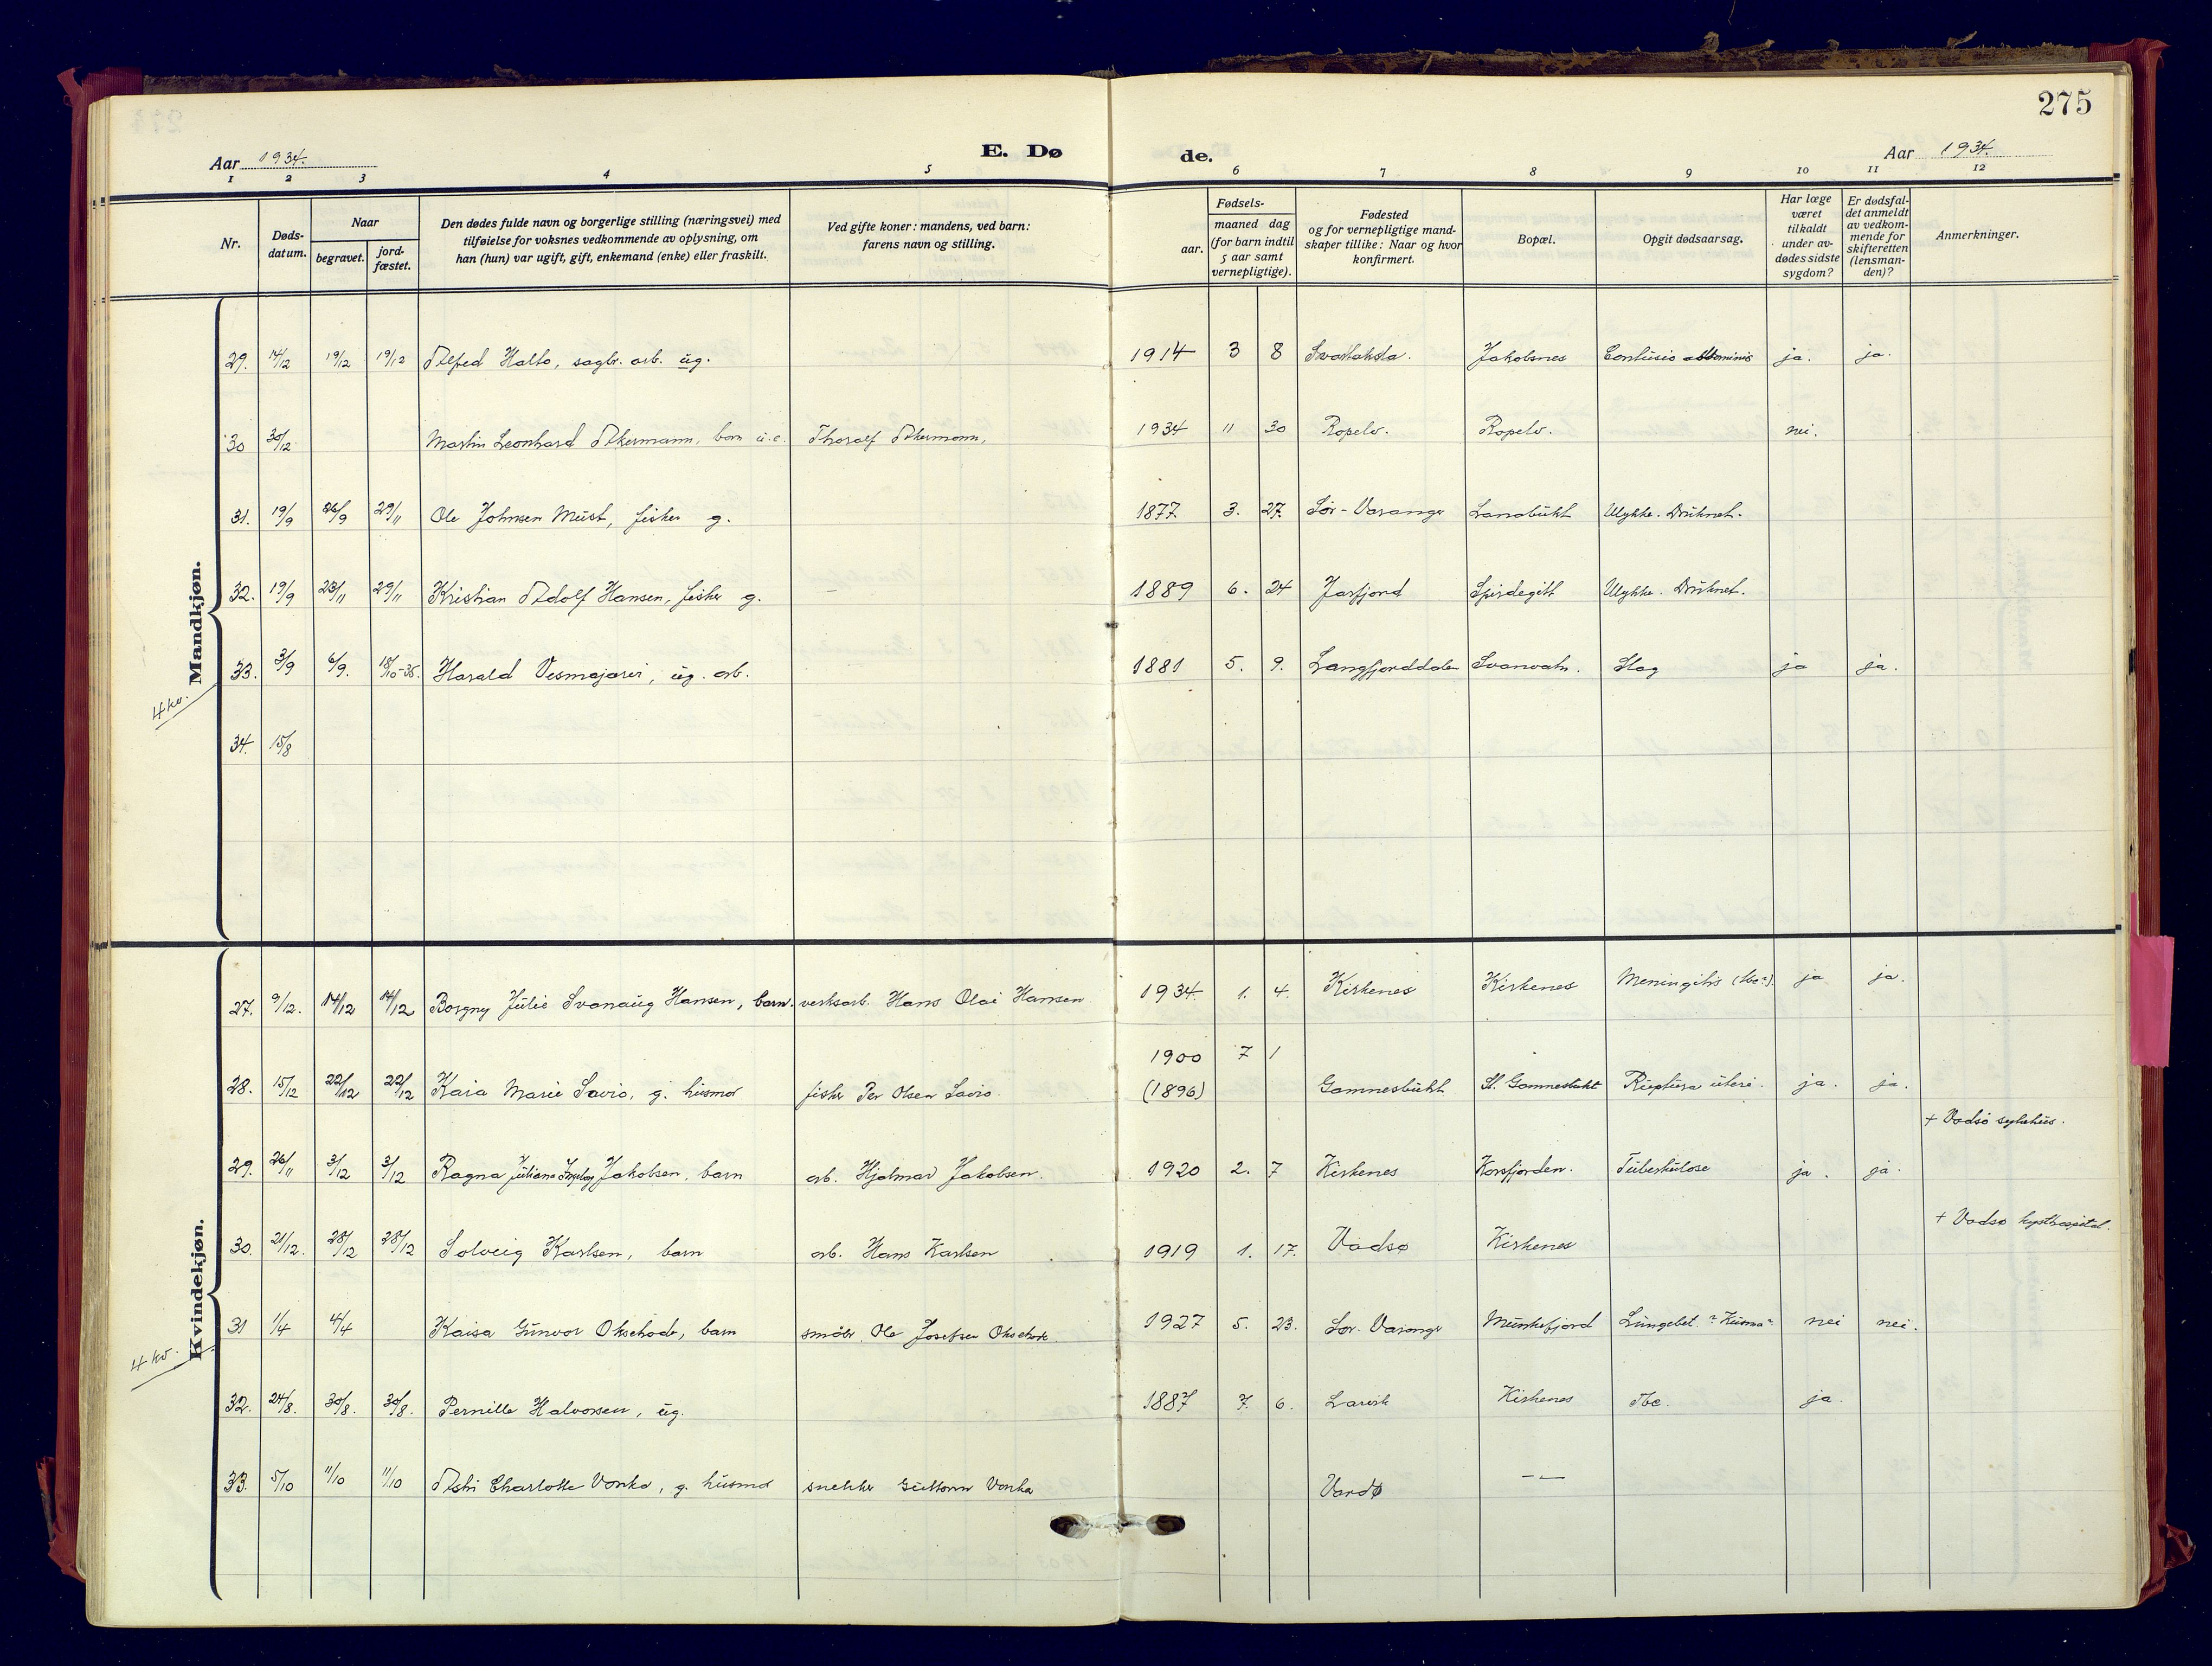 275
Aar 1934.
E. Dø
de.
Aar 1934.
1 2 3 4 5 6 7 8 9 10 11 12
Nr.
Døds-
datum.
Naar
begravet.
jord-
fæstet.
Den dødes fulde navn og borgerlige stilling (næringsvei) med
tilføielse for voksnes vedkommende av oplysning, om
han (hun) var ugift, gift, enkemand (enke) eller fraskilt.
Ved gifte koner: mandens, ved barn:
farens navn og stilling.
Fødsels-
aar.
maaned dag
(for barn indtil
5 aar samt
vernepligtige).
Fødested
og for vernepligtige mand-
skaper tillike: Naar og hvor
konfirmert.
Bopæl.
Opgit dødsaarsag.
Har læge
været
tilkaldt
under av-
dødes sidste
sygdom?
Er dødsfal-
det anmeldt
av vedkom-
mende for
skifteretten
(lensman-
den)?
Anmerkninger.
Mandkjøn.
4 kv.
29. 14/12 19/12 19/12 Alfred Halto, sagbr. arb. ug. 1914 3 8 Svartaksla. Jakobsnes Contusio abdominis ja. ja.
30 30/12 Martin Leonhard Akermann, barn u.e. Thoralf Akermann, 1934 11 30 Ropelv. Ropelv. nei.
31. 19/9 26/9 29/11 Ole Johnsen Must, fisker g. 1877. 3. 27. Sør-Varanger Lanabukt Ulykke. Druknet.
32. 19/9 23/11 29/11 Kristian Adolf Hansen, fisker g. 1889 6. 24 Jarfjord Spirdegilt Ulykke. Druknet.
33. 3/9 6/9. 18/10-35. Harald Vesmajavri, ug. arb. 1881 5. 9. Langfjorddalen Svanvatn. Slag ja ja.
34. 15/8
Kvindekjøn.
4 kv.
27. 9/12. 14/12 14/12 Borgny Julie Svanaug Hansen, barn. verksarb. Hans Olai Hansen 1934. 1. 4. Kirkenes Kirkenes Meningitis (tbc?). ja ja.
1900 7 1
28. 15/12 22/12 22/12 Kaia Marie Savio, g. husmor fisker Per Olsen Savio. (1896) Gamnesbukt St. Gamnesbukt Ruptura uteri. ja. ja.
+ Vadsø sykehus.
29. 26/11 3/12 3/12 Ragna Juliane Ingeborg Jakobsen, barn arb. Hjalmar Jakobsen. 1920 2. 7 Kirkenes Korsfjorden. Tuberkulose ja. ja.
+ Vadsø kysthospital.
30. 21/12. 28/12 28/12 Solveig Karlsen, barn arb. Hans Karlsen 1919 1. 17. Vadsø Kirkenes
31 1/4 4/4 Kaisa Gunvor Oksehode, barn småbr. Ole Josefsen Oksehode 1927 5. 23. Sør-Varanger Munkefjord Lungebet. nei nei.
32. 24/8. 30/8. 30/8. Pernille Halvorsen, ug. 1887 7. 6. Larvik Kirkenes Tbc. ja.
33. 5/10 11/10 11/10 Astri Charlotte Vonka, g. husmor snekker Guttorm Vonka Vardø — —